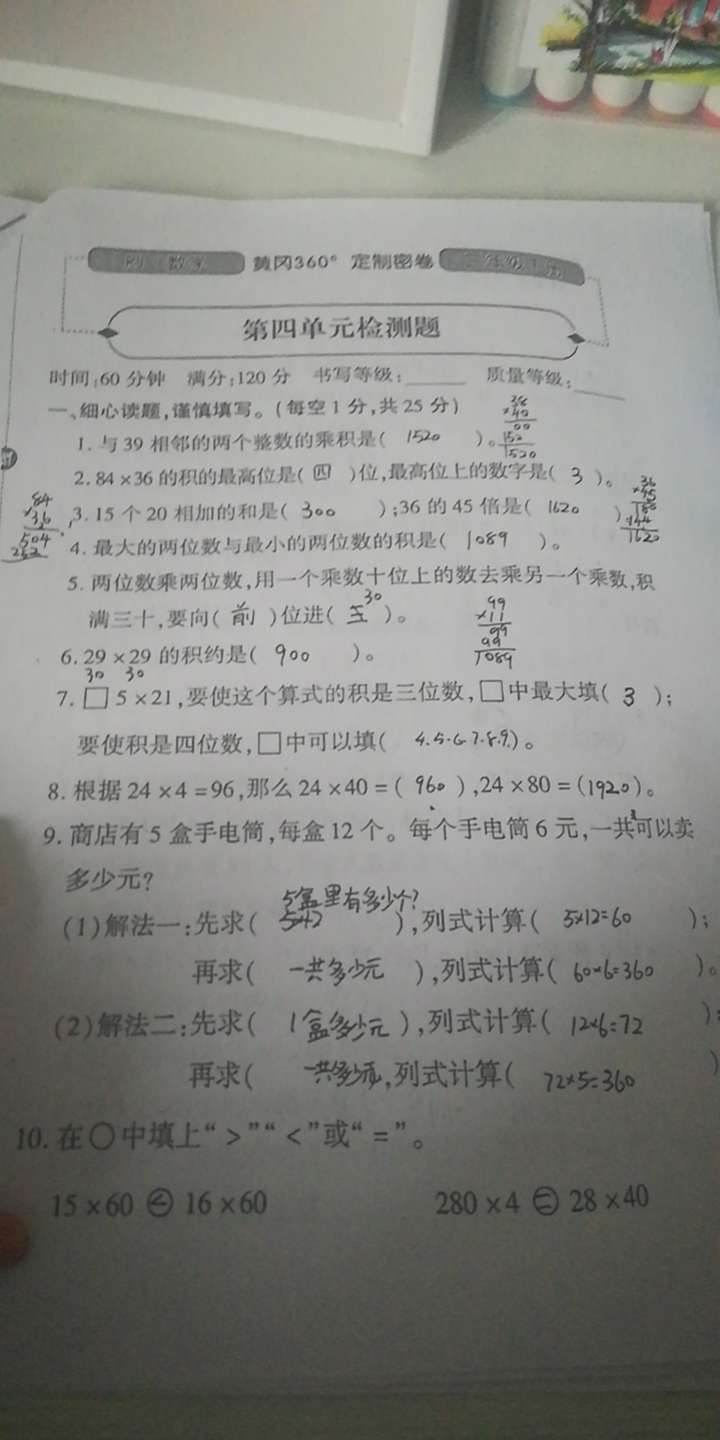 黄冈360° 定制密卷
第四单元检测题
时间:60分钟 满分:120分 书写等级:______ 质量等级:______
一、细心读题,谨慎填写。(每空1分,共25分)
1. 与39相邻的两个整数的乘积是( 1520 )。
38
×40
00
152
1520
2. 84×36的积的最高位是( 四 )位,最高位上的数字是( 3 )。
84
×36
504
252
3. 15个20相加的和是( 300 );36的45倍是( 1620 )
36
×45
180
144
1620
4. 最大的两位数与最小的两位数的积是( 1089 )。
5. 两位数乘两位数,用一个乘数十位上的数去乘另一个乘数,积
满三十,要向( 前 )位进( 三 )。
30
99
×11
99
99
1089
6. 29×29的积约是( 900 )。
30 30
7. □5×21,要使这个算式的积是三位数,□中最大填( 3 );
要使积是四位数,□中可以填( 4.5.6.7.8.9.)。
8. 根据24×4=96,那么24×40=( 960 ),24×80=(1920)。
9. 商店有5盒手电筒,每盒12个。每个手电筒6元,一共可以卖
多少元?
5盒里有多少个?
(1)解法一:先求( ),列式计算( 5×12=60 );
再求( 一共多少元 ),列式计算( 60×6=360 )。
(2)解法二:先求( 1盒多少元 ),列式计算( 12×6=72 );
再求( 一共多少元,列式计算( 72×5=360 )
10. 在○中填上“>”“<”或“=”。
15×60 < 16×60 280×4 = 28×40